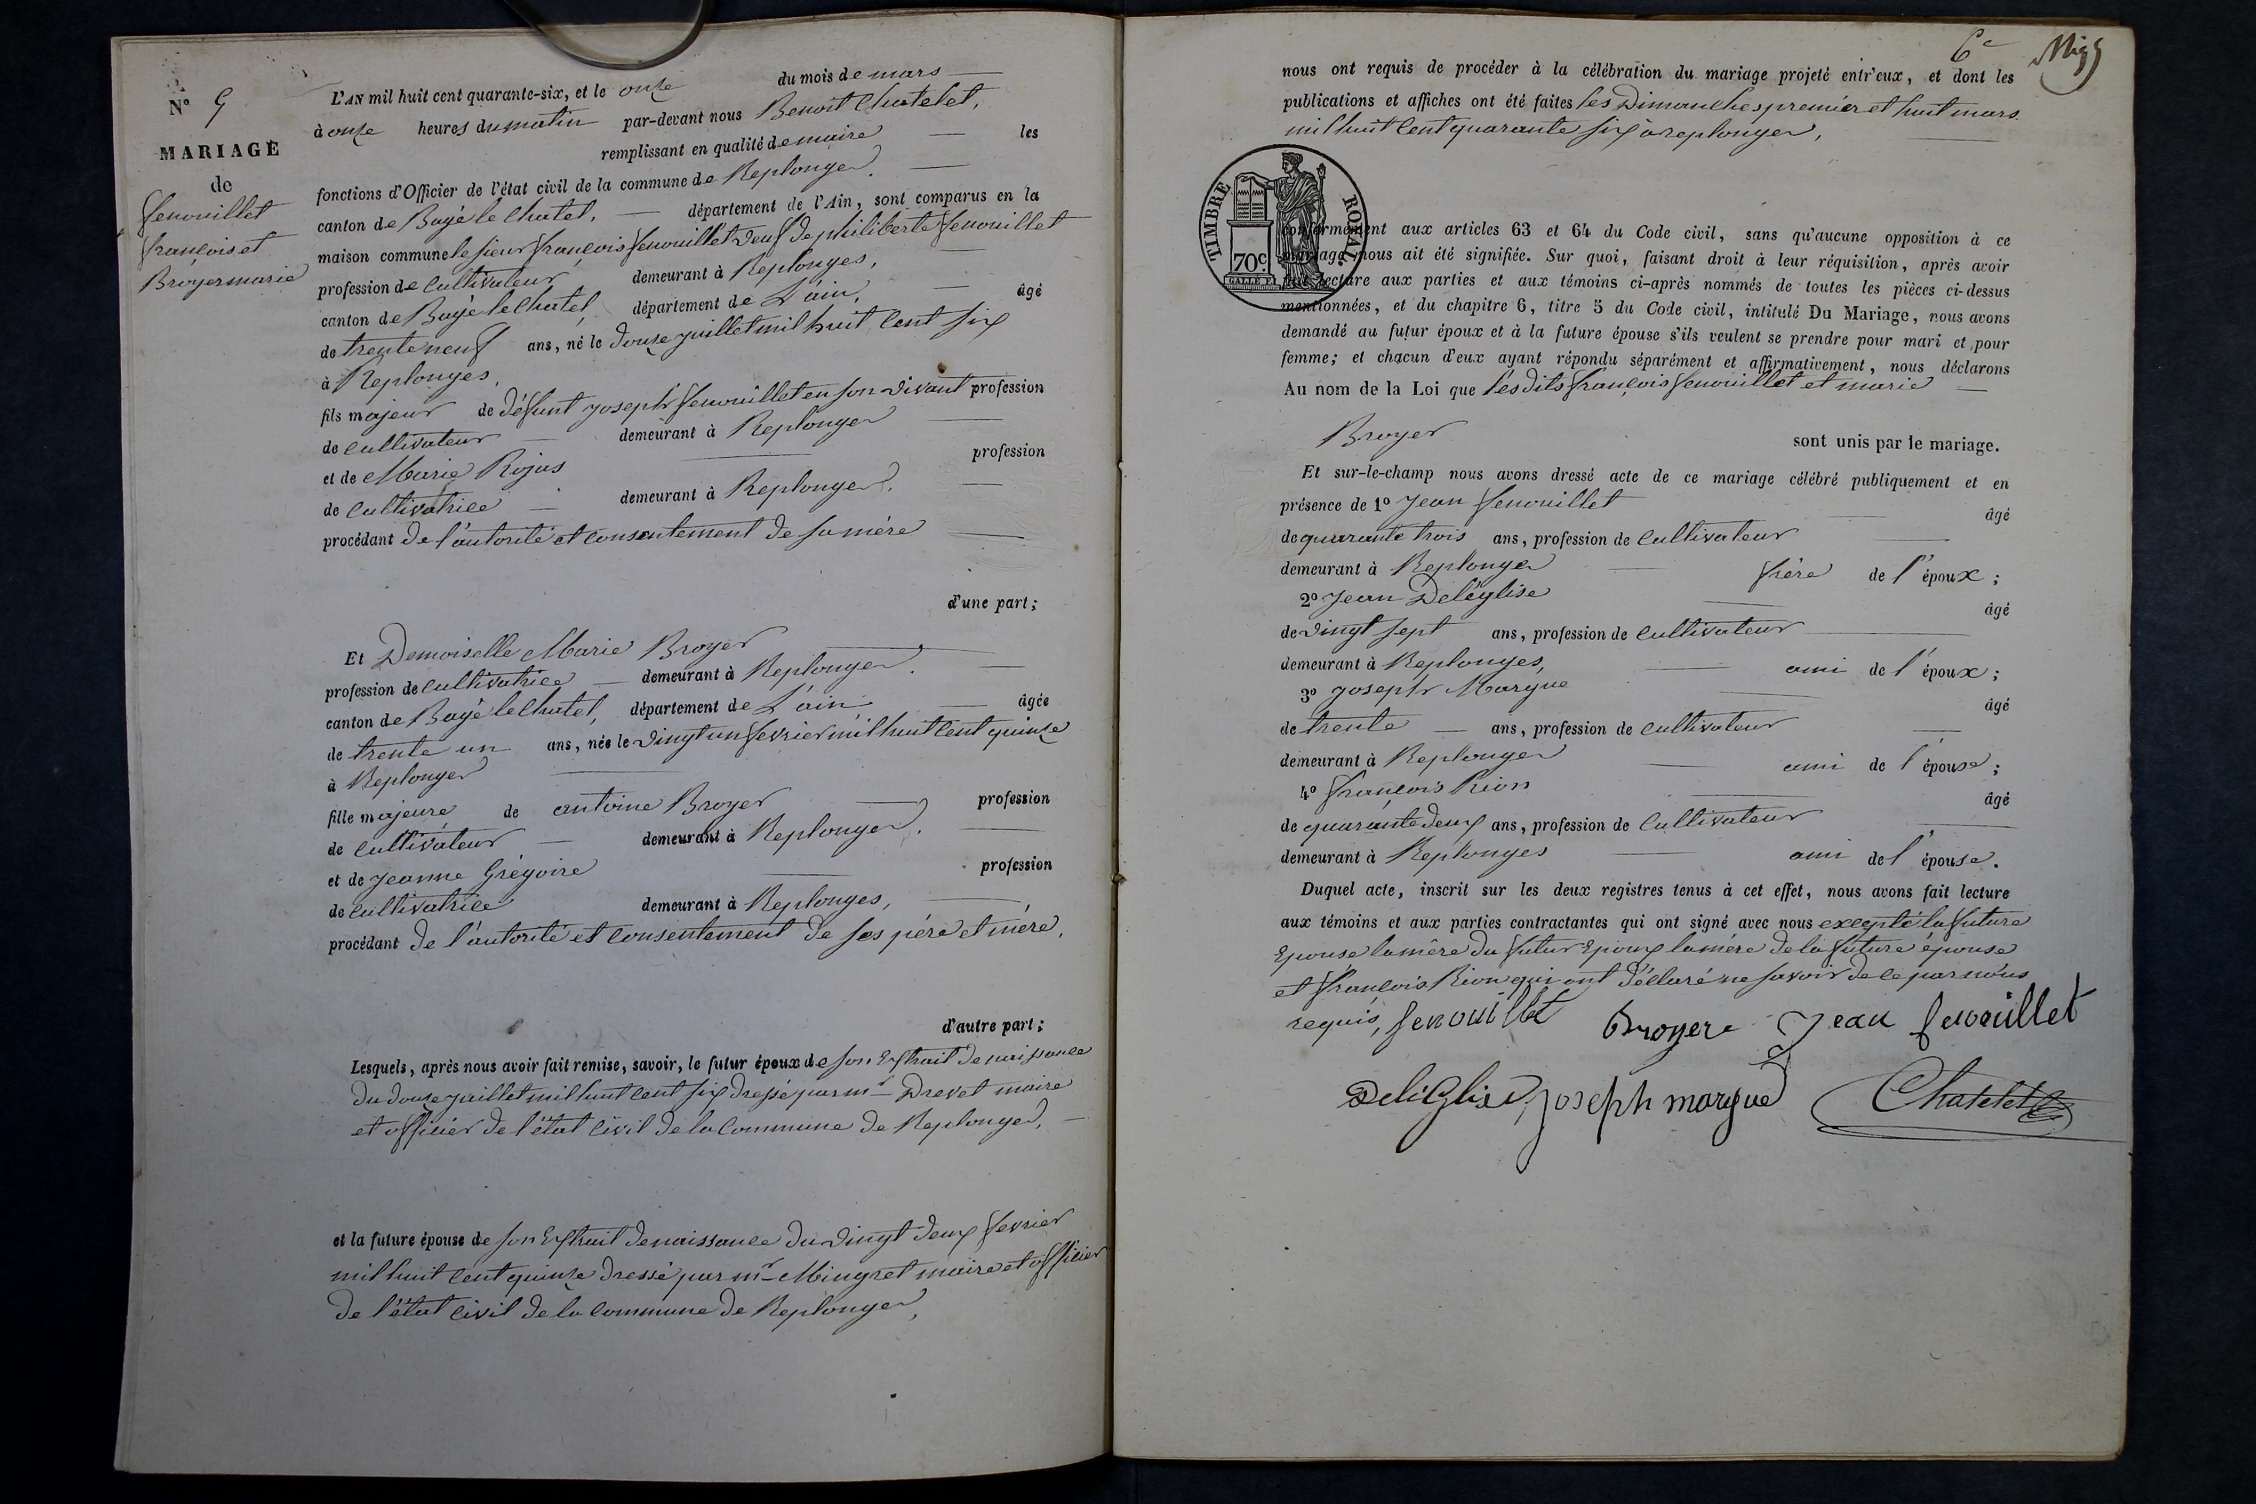 N° 9
MARIAGE
de
fenouillet
françois et
Broyer marie
L'AN mil huit cent quarante-six, et le onze du mois de mars
à onze heures du matin par-devant nous Benoit Chatelet,
remplissant en qualité de maire les
fonctions d'Officier de l'état civil de la commune de Replonges.
canton de Bagé le Chatel, département de l'Ain, sont comparus en la
maison commune le sieur françois fenouillet veuf de philiberte fenouillet
profession de cultivateur demeurant à Replonges,
canton de Bagé le Chatel, département de L'ain, âgé
de trente neuf ans, né le douze juillet mil huit cent six
à Replonges,
fils majeur de défunt joseph fenouillet en son vivant profession
de cultivateur demeurant à Replonges
et de Marie Rojas profession
de cultivatrice demeurant à Replonges,
procédant de l'autorité et consentement de sa mére
d'une part;
Et Demoiselle Marie Broyer
profession de cultivatrice demeurant à Replonges.
canton de Bagé le Chatel, département de L'ain âgée
de trente un ans, née le vingt un fevrier mil huit cent quinze
à Replonges
fille majeure de antoine Broyer profession
de cultivateur demeurant à Replonges.
et de jeanne Grégoire profession
de cultivatrice demeurant à Replonges,
procédant de l'autorité et consentement de ses pére et mére.
d'autre part;
Lesquels, après nous avoir fait remise, savoir, le futur époux de son Extrait de naissance
du douze juillet mil huit cent six dressé par mr Drevet maire
et officier de l'état civil de la commune de Replonges,
et la future épouse de son Extrait de naissance du vingt deux fevrier
mil huit cent quinze dressé par mr Mingret maire et officier
de l'état civil de la commune de Replonges,
6e
nous ont requis de procéder à la célébration du mariage projeté entr'eux, et dont les
publications et affiches ont été faites les Dimanches premier et huit mars
mil huit cent quarante six à replonges,
TIMBRE ROYAL
70c.
conformément aux articles 63 et 64 du Code civil, sans qu'aucune opposition à ce
mariage nous ait été signifiée. Sur quoi, faisant droit à leur réquisition, après avoir
fait lecture aux parties et aux témoins ci-après nommés de toutes les pièces ci-dessus
mentionnées, et du chapitre 6, titre 5 du Code civil, intitulé Du Mariage, nous avons
demandé au futur époux et à la future épouse s'ils veulent se prendre pour mari et pour
femme; et chacun d'eux ayant répondu séparément et affirmativement, nous déclarons
Au nom de la Loi que lesdits françois fenouillet et marie
Broyer sont unis par le mariage.
Et sur-le-champ nous avons dressé acte de ce mariage célébré publiquement et en
présence de 1° Jean fenouillet âgé
de quarante trois ans, profession de cultivateur
demeurant à Replonges frère de l'époux;
2° Jean Deléglise âgé
de vingt sept ans, profession de cultivateur
demeurant à Replonges, ami de l'époux;
3° joseph Margue âgé
de trente ans, profession de cultivateur
demeurant à Replonges ami de l'épouse;
4° françois Rion âgé
de quarante deux ans, profession de cultivateur
demeurant à Replonges ami de l'épouse.
Duquel acte, inscrit sur les deux registres tenus à cet effet, nous avons fait lecture
aux témoins et aux parties contractantes qui ont signé avec nous excepté la future
Epouse la mère du futur Epoux la mère de la future épouse
et françois Rion qui ont déclaré ne savoir de ce par nous
requis, fenouillet Broyer Jean fenouillet
Deliglise joseph margue Chatelet